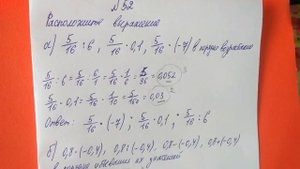 №52
Расположите выражения
а) 5/16 : 6 , 5/16 · 0,1 , 5/16 · (-7) в порядке возрастания
5/16 : 6 = 5/16 : 6/1 = 5/16 · 1/6 = 5/96 = 0,052
5/16 · 0,1 = 5/16 · 1/10 = 5/160 = 0,03
Ответ: 5/16 · (-7) ; 5/16 · 0,1 ; 5/16 : 6
б) 0,8 · (-0,4), 0,8 : (-0,4), 0,8 - (-0,4), 0,8 + (-0,4)
в порядке убывания их значений